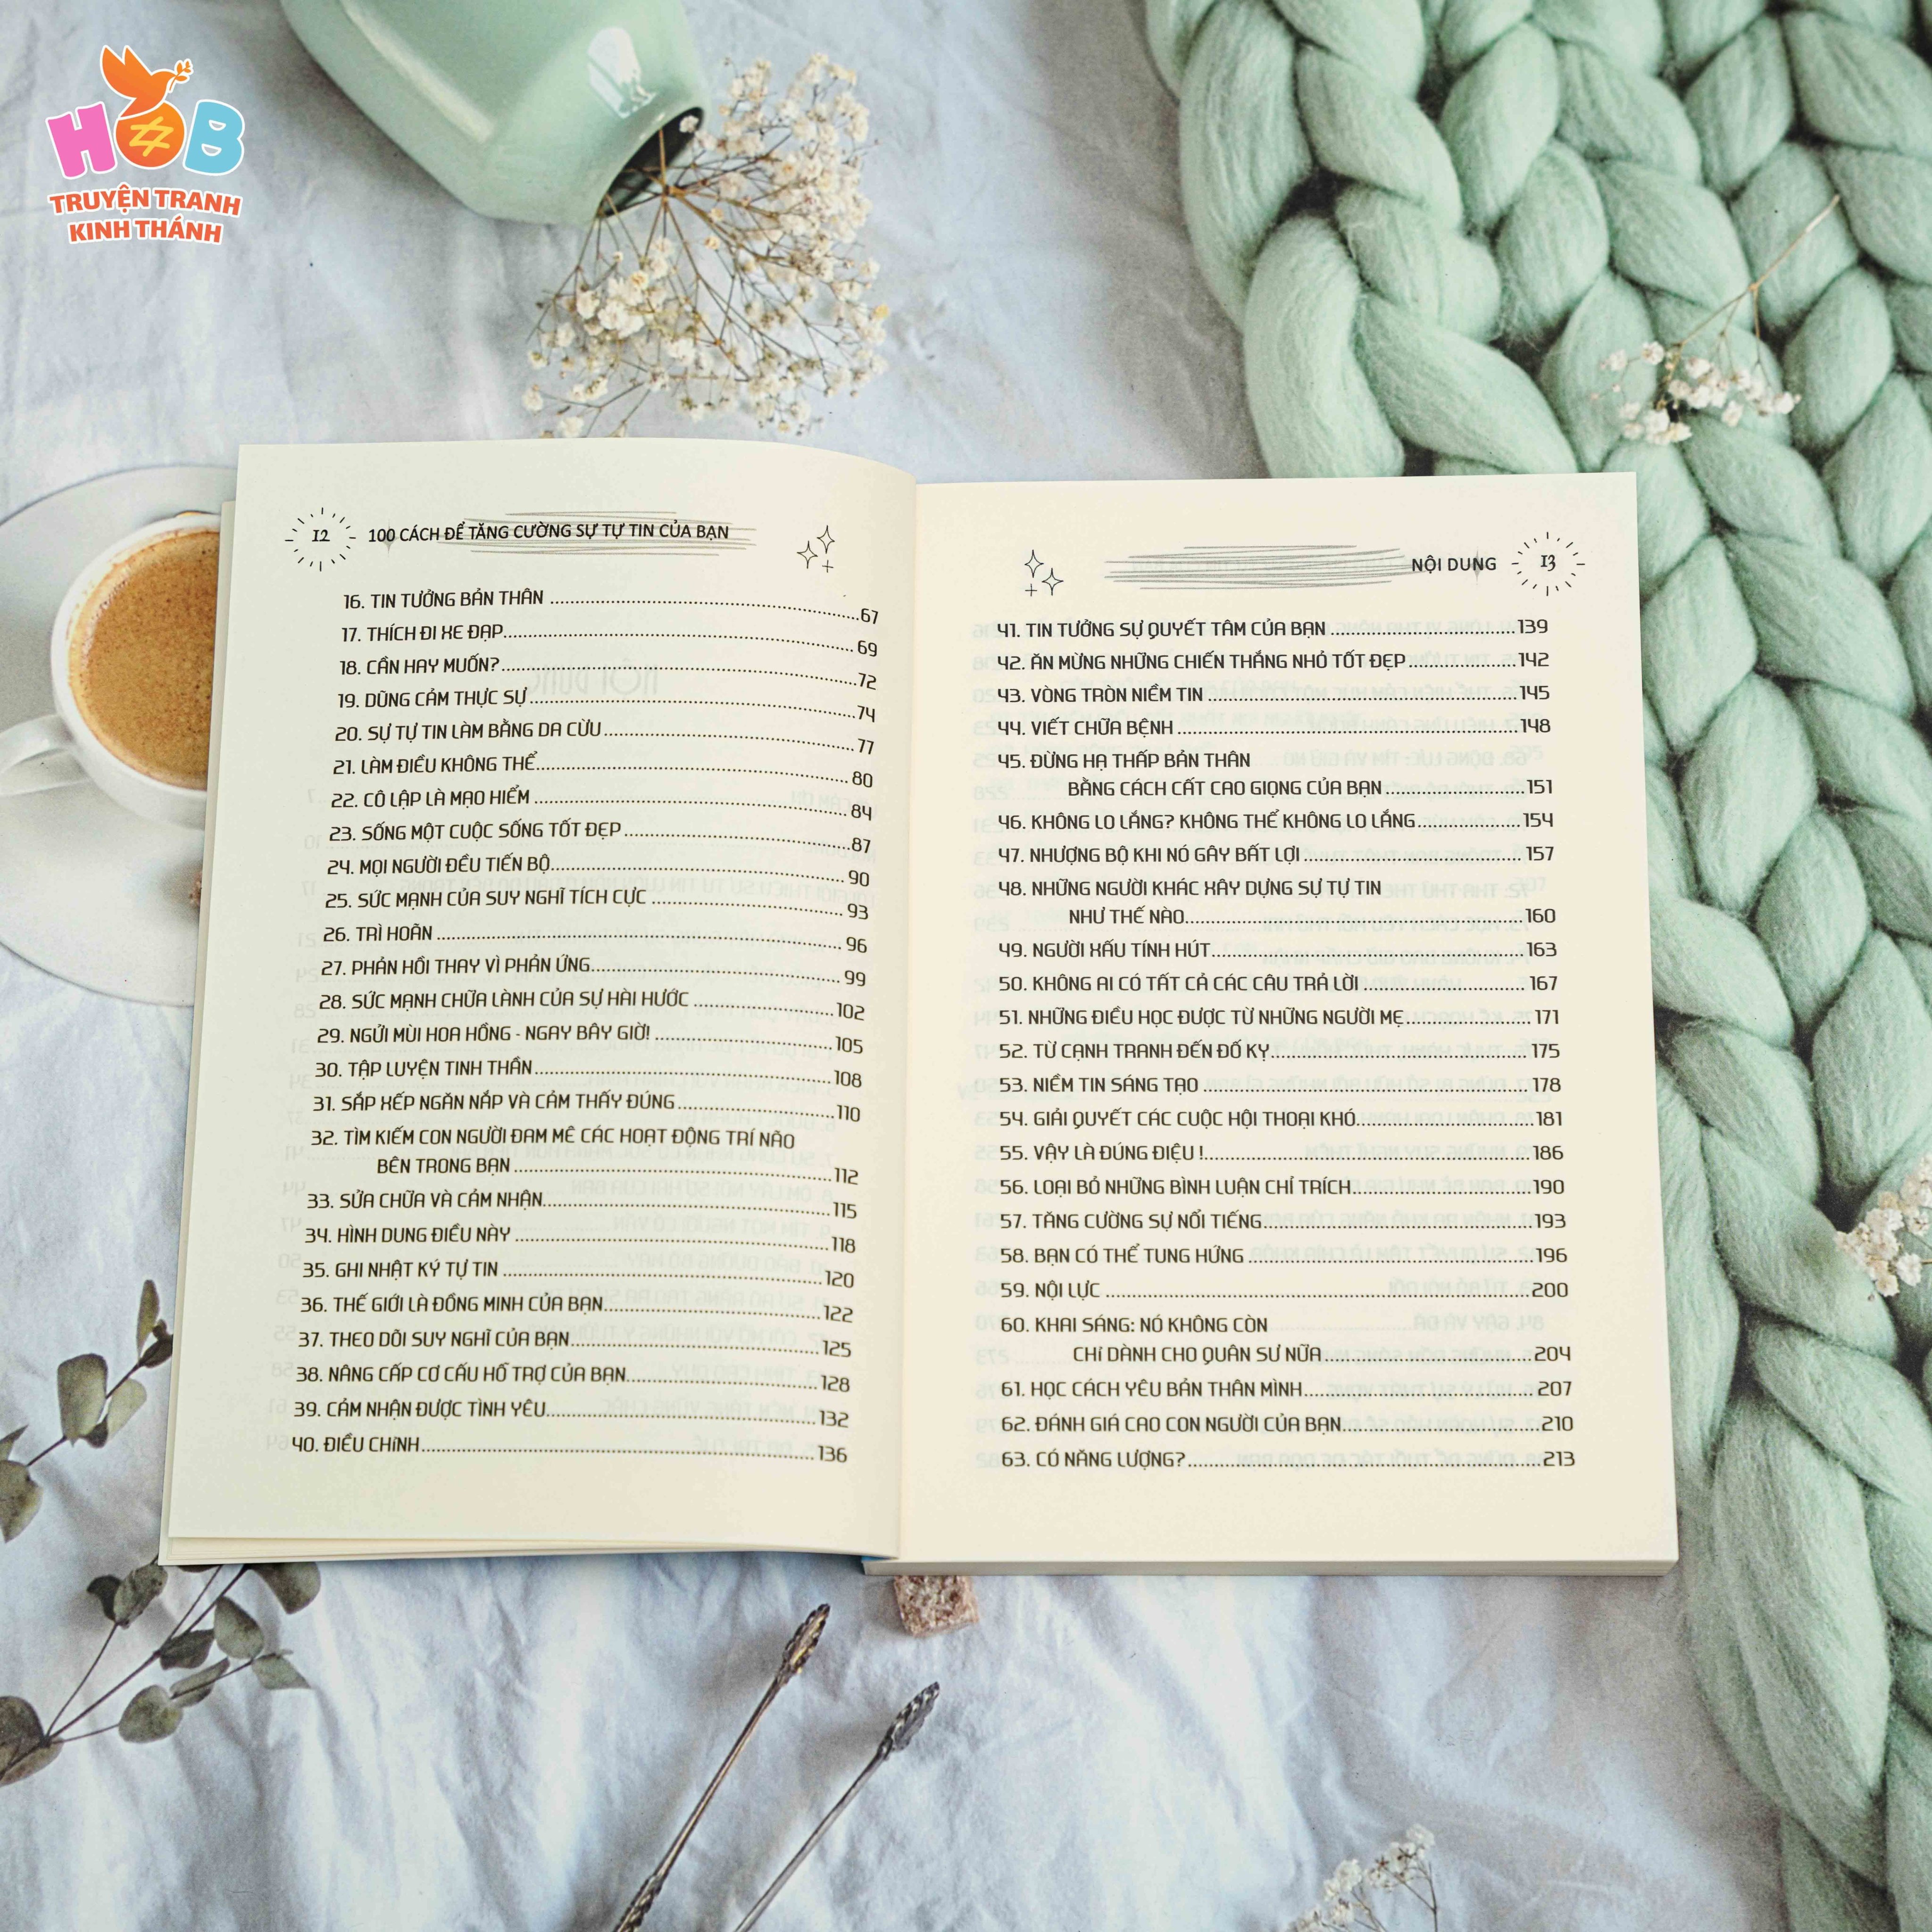 HOB
TRUYỆN TRANH
KINH THÁNH
12
100 CÁCH ĐỂ TĂNG CƯỜNG SỰ TỰ TIN CỦA BẠN
16. TIN TƯỞNG BẢN THÂN ........ 67
17. THÍCH ĐI XE ĐẠP ........ 69
18. CẦN HAY MUỐN? ........ 72
19. DŨNG CẢM THỰC SỰ ........ 74
20. SỰ TỰ TIN LÀM BẰNG DA CỪU ........ 77
21. LÀM ĐIỀU KHÔNG THỂ ........ 80
22. CÔ LẬP LÀ MẠO HIỂM ........ 84
23. SỐNG MỘT CUỘC SỐNG TỐT ĐẸP ........ 87
24. MỌI NGƯỜI ĐỀU TIẾN BỘ ........ 90
25. SỨC MẠNH CỦA SUY NGHĨ TÍCH CỰC ........ 93
26. TRÌ HOÃN ........ 96
27. PHẢN HỒI THAY VÌ PHẢN ỨNG ........ 99
28. SỨC MẠNH CHỮA LÀNH CỦA SỰ HÀI HƯỚC ........ 102
29. NGỬI MÙI HOA HỒNG - NGAY BÂY GIỜ! ........ 105
30. TẬP LUYỆN TINH THẦN ........ 108
31. SẮP XẾP NGĂN NẮP VÀ CẢM THẤY ĐÚNG ........ 110
32. TÌM KIẾM CON NGƯỜI ĐAM MÊ CÁC HOẠT ĐỘNG TRÍ NÃO
BÊN TRONG BẠN ........ 112
33. SỬA CHỮA VÀ CẢM NHẬN ........ 115
34. HÌNH DUNG ĐIỀU NÀY ........ 118
35. GHI NHẬT KÝ TỰ TIN ........ 120
36. THẾ GIỚI LÀ ĐỒNG MINH CỦA BẠN ........ 122
37. THEO DÕI SUY NGHĨ CỦA BẠN ........ 125
38. NÂNG CẤP CƠ CẤU HỖ TRỢ CỦA BẠN ........ 128
39. CẢM NHẬN ĐƯỢC TÌNH YÊU ........ 132
40. ĐIỀU CHỈNH ........ 136
NỘI DUNG
13
41. TIN TƯỞNG SỰ QUYẾT TÂM CỦA BẠN ........ 139
42. ĂN MỪNG NHỮNG CHIẾN THẮNG NHỎ TỐT ĐẸP ........ 142
43. VÒNG TRÒN NIỀM TIN ........ 145
44. VIẾT CHỮA BỆNH ........ 148
45. ĐỪNG HẠ THẤP BẢN THÂN
BẰNG CÁCH CẤT CAO GIỌNG CỦA BẠN ........ 151
46. KHÔNG LO LẮNG? KHÔNG THỂ KHÔNG LO LẮNG ........ 154
47. NHƯỢNG BỘ KHI NÓ GÂY BẤT LỢI ........ 157
48. NHỮNG NGƯỜI KHÁC XÂY DỰNG SỰ TỰ TIN
NHƯ THẾ NÀO ........ 160
49. NGƯỜI XẤU TÍNH HÚT ........ 163
50. KHÔNG AI CÓ TẤT CẢ CÁC CÂU TRẢ LỜI ........ 167
51. NHỮNG ĐIỀU HỌC ĐƯỢC TỪ NHỮNG NGƯỜI MẸ ........ 171
52. TỪ CẠNH TRANH ĐẾN ĐỐ KỴ ........ 175
53. NIỀM TIN SÁNG TẠO ........ 178
54. GIẢI QUYẾT CÁC CUỘC HỘI THOẠI KHÓ ........ 181
55. VẬY LÀ ĐÚNG ĐIỆU ! ........ 186
56. LOẠI BỎ NHỮNG BÌNH LUẬN CHỈ TRÍCH ........ 190
57. TĂNG CƯỜNG SỰ NỔI TIẾNG ........ 193
58. BẠN CÓ THỂ TUNG HỨNG ........ 196
59. NỘI LỰC ........ 200
60. KHAI SÁNG: NÓ KHÔNG CÒN
CHỈ DÀNH CHO QUÂN SƯ NỮA ........ 204
61. HỌC CÁCH YÊU BẢN THÂN MÌNH ........ 207
62. ĐÁNH GIÁ CAO CON NGƯỜI CỦA BẠN ........ 210
63. CÓ NĂNG LƯỢNG? ........ 213